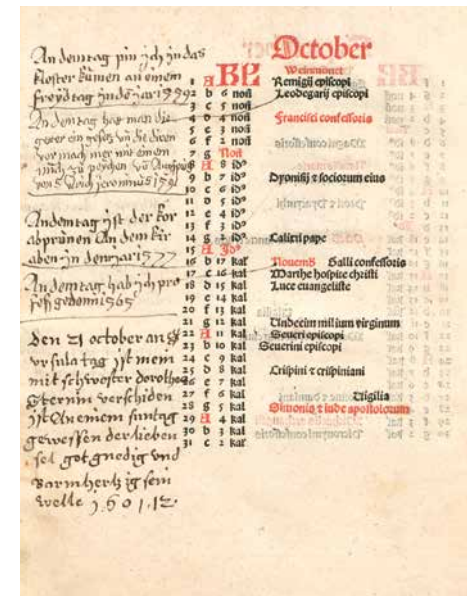 An demtag pin ych yn das
kloster kumen an einem
freydtag yn de jar 1579
An dem tag hat man die
vor mach mer mit einem
von S Ulrich jeronimus 1591
An dem tag yst der kor
abprunen An dem kir
aben in dem jar 1577
An dem tag hab ych pro
feß gedonn 1565
Den 21 october an S
ursula tag yst mein
mit schwoster dorothea
Sternin verschiden
yst An einem suntag
gewessen der lieben
sel got gnedig und
Barmhertzig sein
welle 1601.12.
October
KL Weinmonet
1 A Remigij episcopi
2 b 6 noñ Leodegarij episcopi
3 c 5 noñ
4 d 4 noñ Francisci confessoris
5 e 3 noñ
6 f 2 noñ
7 g Noñ
8 A 8 idꝰ
9 b 7 idꝰ Dyonisij ⁊ sociorum eius
10 c 6 idꝰ
11 d 5 idꝰ
12 e 4 idꝰ
13 f 3 idꝰ
14 g 2 idꝰ Calixti pape
15 A Idꝰ
16 b 17 kal Nouemb Galli confessoris
17 c 16 kal Marthe hospite christi
18 d 15 kal Luce euangeliste
19 e 14 kal
20 f 13 kal
21 g 12 kal Undecim milium virginum
22 A 11 kal Seueri episcopi
23 b 10 kal Seuerini episcopi
24 c 9 kal
25 d 8 kal Crispini ⁊ crispiniani
26 e 7 kal
27 f 6 kal Uigilia
28 g 5 kal Simonis ⁊ iude apostolorum
29 A 4 kal
30 b 3 kal
31 c 2 kal